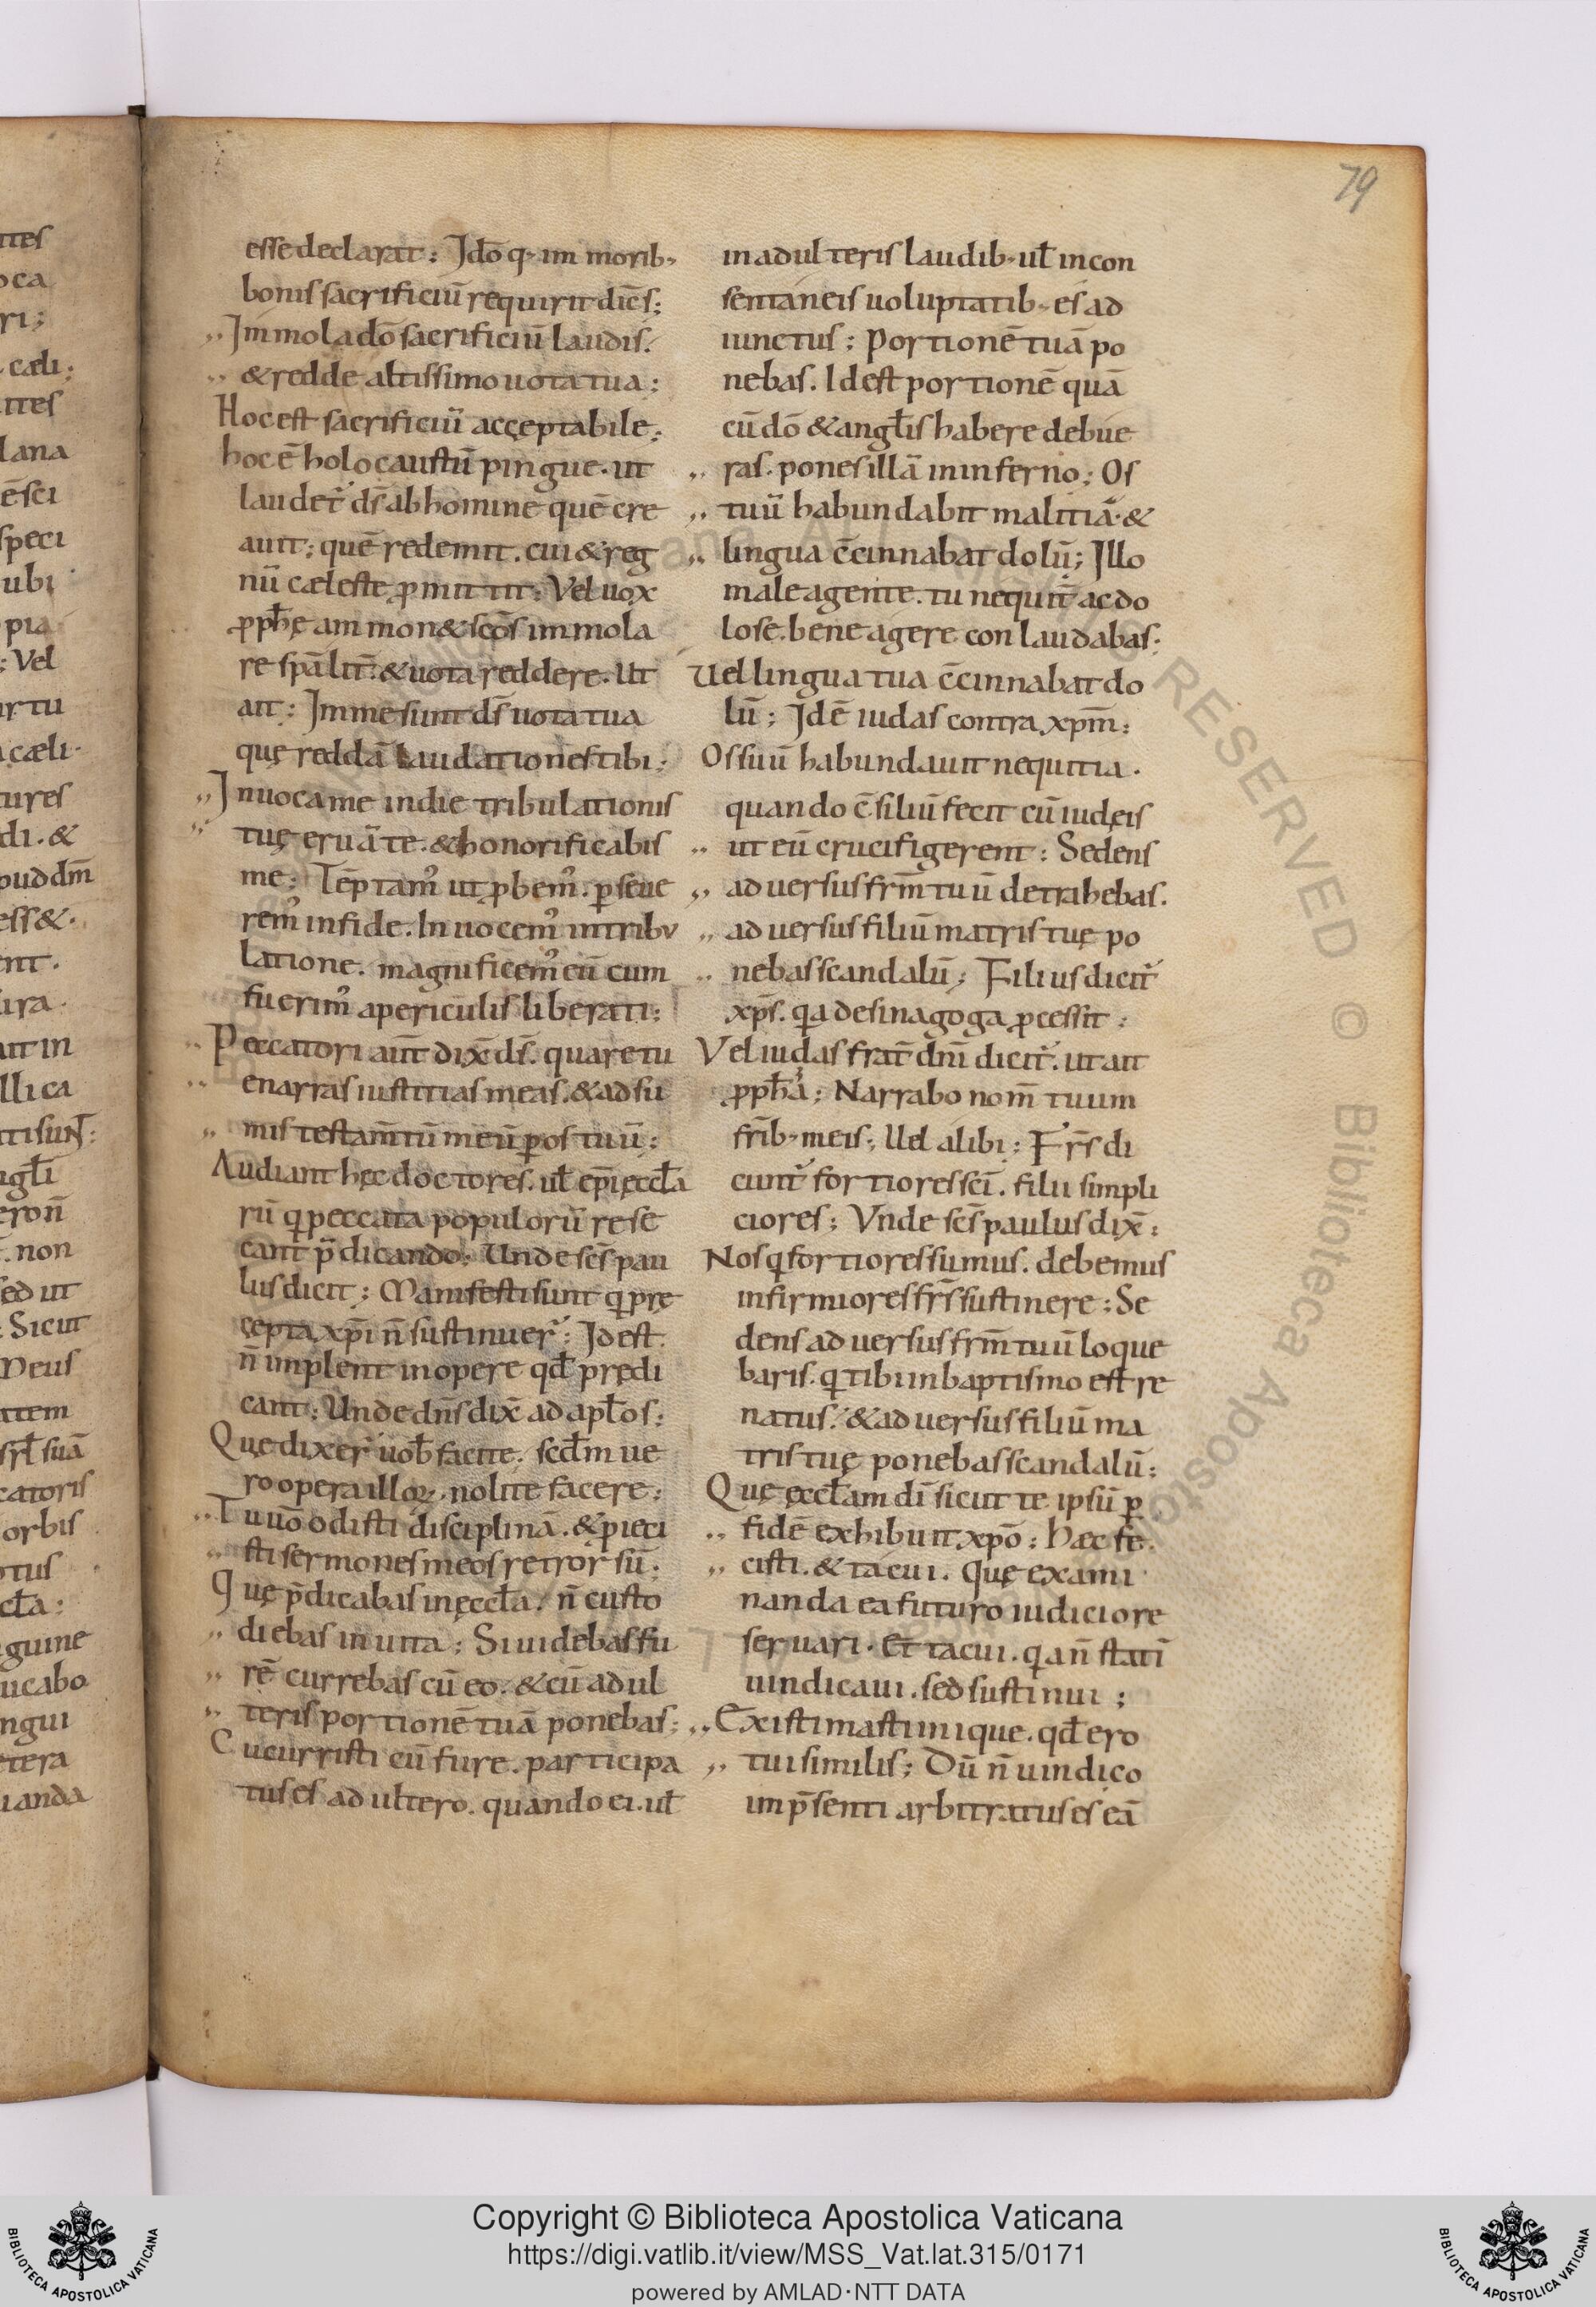 79
esse declarat : Idō q· im morib·
bonis sacrificiū requirit diēs ;
,, Immola dō sacrificiū laudis.
,, & redde altissimo uota tua ;
Hoc est sacrificiū acceptabile ;
hoc ē holocaustū pingue . ut
laudet᷑ ds̄ ab homine quē cre
auit ; quē redemit . cui & reg
nū cæleste ꝓmittit ; Vel uox
ꝓpħę ammon& sc̄os immola
re sp̄alit̄ . & uota reddere . Ut
ait : Im me sunt ds̄ uota tua
quę reddā laudationes tibi ;
,, Inuoca me in die tribulationis
,, tuę eruā te . & honorificabis
me ; Tēptamꝰ ut ꝓbemꝰ . ꝑseue
remꝰ in fide . Inuocemꝰ in tribu
latione . magnificemꝰ eū cum
fuerimꝰ a periculis liberati ;
,, Peccatori aūt dix̄ ds̄ . quare tu
,, enarras iustitias meas . & adsu
,, mis testam̄tū meū ꝑ os tuū ;
Audiant hęc doctores . uł ep̄i ęccła
rū q̵ peccata populorū rese
cant p̄dicando ; Unde sc̄s pau
lus dicit ; Manifesti sunt q̵ prę
cepta xp̄i n̄ sustinuer᷑ ; Id est
n̄ implent in opere qđ prędi
cant ; Unde dn̄s dix̄ ad apłos ;
Quę dixer᷑ uob̄ facite ; scđm ue
ro opera illoꝝ . nolite facere ;
,, Tu uō odisti disciplinā . & ꝓieci
,, sti sermones meos retrorsū ;
Quę p̄dicabas in ęccła . n̄ custo
,, diebas in uita ; Si uidebas fu
,, rē currebas cū eo . & cū adul
,, teris portionē tuā ponebas ;
Cucurristi cū fure . participa
tus es adultero . quando ei . uł
in adulteris laudib· uł in con
sentaneis uoluptatib· es ad
iunctus ; Portionē tuā po
nebas . Id est portionē quā
cū dō & angłis habere debue
,, ras . pones illā in inferno ; Os
,, tuū habundabit malitiā . &
,, lingua c̄cinnabat dolū ; Illo
male agente . tu nequit᷑ ac do
lose . bene agere conlaudabas ;
Uel lingua tua c̄cinnabat do
lū ; Idē iudas contra xpm̄ ;
Os suū habundauit nequitia .
quando c̄siliū fecit cū iudęis
,, ut eū crucifigerent ; Sedens
,, aduersus frm̄ tuū detrahebas .
,, aduersus filiū matris tuę po
,, nebas scandalū ; Filius dicit᷑
xp̄s . q̵a de sinagoga ꝓcessit ;
Vel iudas frat̄ dn̄i dicit᷑ . ut ait
ꝓpħa ; Narrabo nom̄ tuum
frīb· meis ; Uel alibi ; Frs̄ di
cunt᷑ fortiores sc̄i . filii simpli
ciores ; Vnde sc̄s paulus dix̄ ;
Nos q̵ fortiores sumus . debemus
infirmiores frs̄ sustinere ; Se
dens aduersus frm̄ tuū loque
baris . q̵ tibi in baptismo est re
natus . & aduersus filiū ma
tris tuę ponebas scandalū ;
Quę ęccłam dī sicut te ipsū ꝑ
,, fidē exhibuit xp̄o ; Hæc fe
,, cisti . & tacui . Quę exami
nanda ea futuro iudicio re
seruari . Et tacui . q̵a n̄ stati
uindicaui . sed sustinui ;
,, Existimasti inique . qđ ero
,, tui similis ; Dū n̄ uindico
im p̄senti arbitratus es eā
Copyright © Biblioteca Apostolica Vaticana
https://digi.vatlib.it/view/MSS_Vat.lat.315/0171
powered by AMLAD·NTT DATA